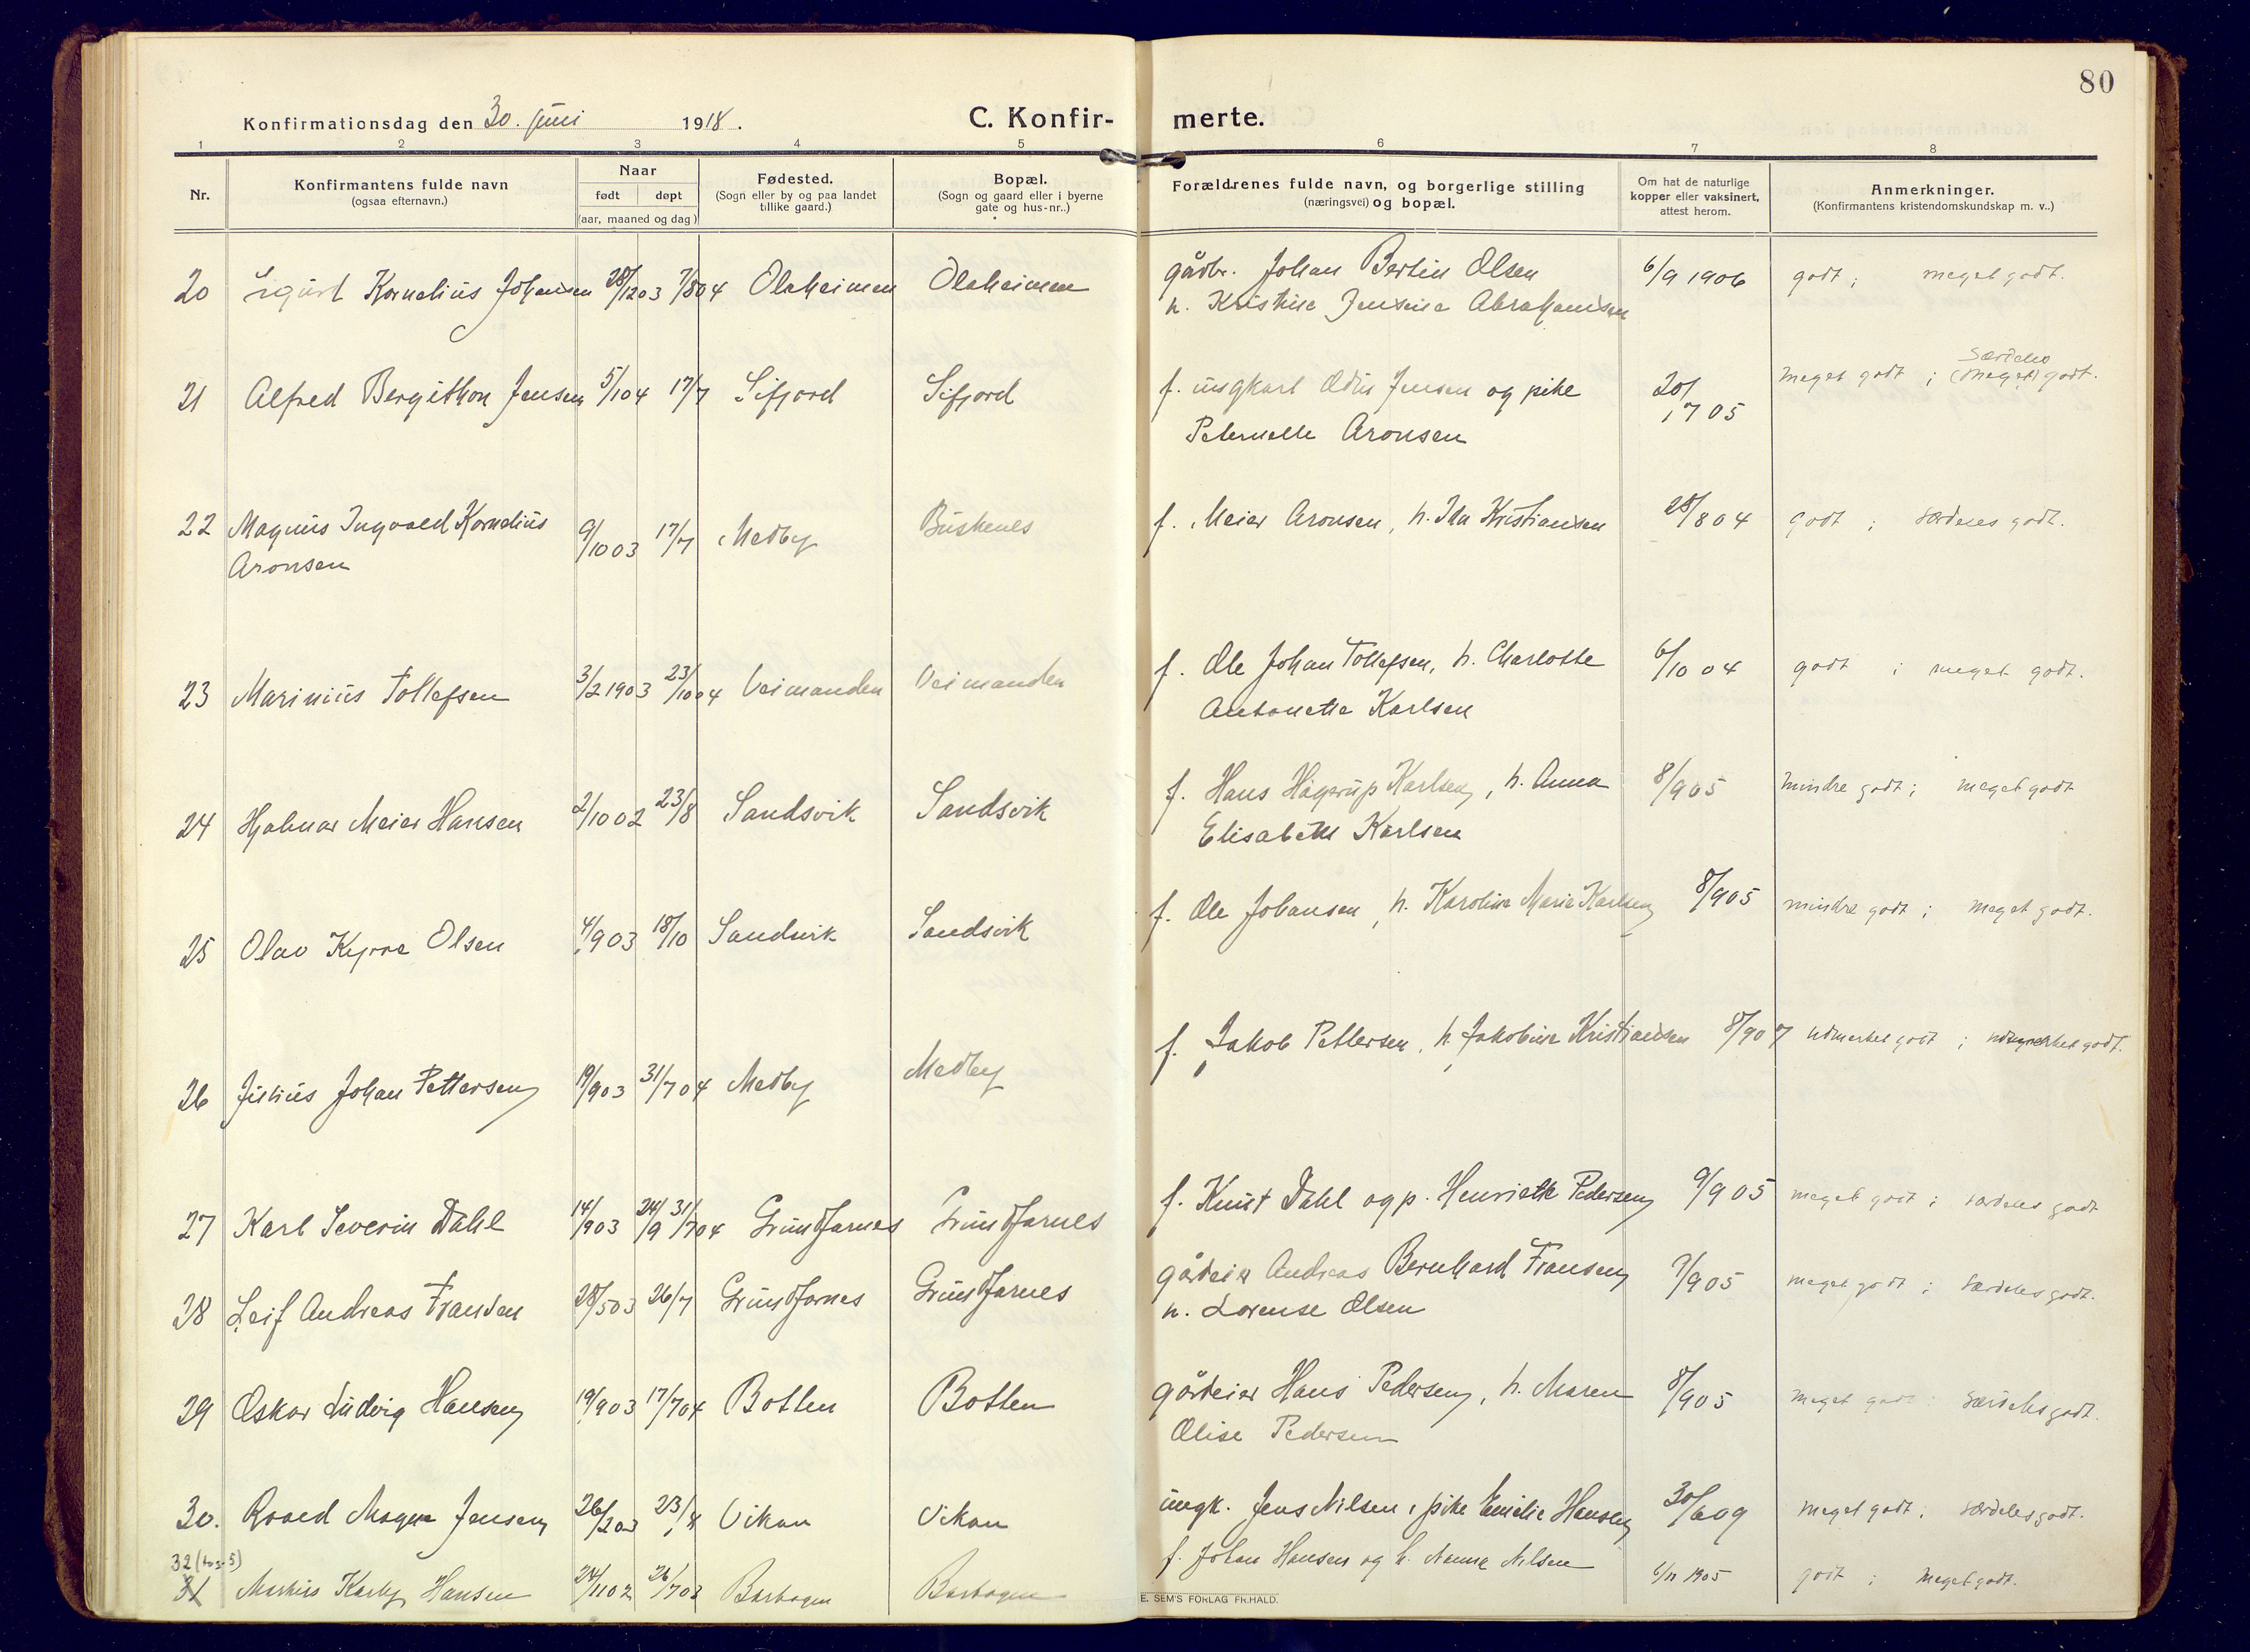 80
Konfirmationsdag den 30. juni 1918.
C. Konfir-
merte.
1 2 3 4 5 6 7 8
Nr.
Konfirmantens fulde navn
(ogsaa efternavn.)
Naar
født døpt
(aar, maaned og dag)
Fødested.
(Sogn eller by og paa landet
tillike gaard.)
Bopæl.
(Sogn og gaard eller i byerne
gate og hus-nr..)
Forældrenes fulde navn, og borgerlige stilling
(næringsvei) og bopæl.
Om hat de naturlige
kopper eller vaksinert,
attest herom.
Anmerkninger.
(Konfirmantens kristendomskundskap m. v..)
20 Sigurd Kornelius Johansen 28/12 03 7/8 04 Olaheimen Olaheimen gårdbr. Johan Bertin Olsen 6/9 1906 godt ; meget godt.
h. Kristine Jensine Abrahamsen
særdeles
21 Alfred Bergithon Jensen 5/1 04 17/7 Sifjord Sifjord f. ungkarl Odin Jensen og pike 20/7 05 meget godt ; (meget) godt.
Peternelle Aronsen
22 Magnus Ingvald Kornelius 9/10 03 17/7 Medby Buskenes f. Meier Aronsen, h. Ida Kristiansen 28/8 04 godt ; særdeles godt.
Aronsen
23 Marinius Tollefsen 3/2 1903 23/10 04 Veimanden Veimanden f. Ole Johan Tollefsen, h. Charlotte 6/10 04 godt ; meget godt.
Antonette Karlsen
24 Hjalmar Meier Hansen 2/10 02 23/8 Sandsvik Sandsvik f. Hans Hagerup Karlsen, h. Anna 8/9 05 mindre godt ; meget godt
Elisabeth Karlsen
25 Olav Kyrre Olsen 4/9 03 18/10 Sandsvik Sandsvik f. Ole Johansen, h. Karoline Marie Karlsen 8/9 05 mindre godt ; meget godt.
26 Julius Johan Pettersen 19/9 03 31/7 04 Medby Medby f. Jakob Pettersen, h. Jakobine Kristiansen 8/9 07 udmerket godt ; udmerket godt.
27 Karl Severin Dahl 14/9 03 24/9 31/7 04 Grundfarnes Grundfarnes f. Knut Dahl og p. Henriette Pedersen 9/9 05 meget godt ; særdeles godt
28 Leif Andreas Fransen 28/5 03 26/7 Grundfarnes Grundfarnes gårdeier Andreas Bernhard Fransen 7/9 05 meget godt ; særdeles godt.
h. Lorense Olsen
29 Oskar Ludvig Hansen 19/9 03 17/7 04 Botten Botten gårdeier Hans Pedersen, h. Maren 8/9 05 meget godt særdeles godt.
Olise Pedersen
30. Roald Magne Jensen 26/2 03 23/8 Vikan Vikan ungk. Jens Nilsen, pike Emelie Hansen 30/6 09 meget godt ; særdeles godt.
32
31 Hansen 24/11 02 26/7 03 Barbogen Barbogen f. Johan Hansen og h. Nanna Nilsen 6/11 1905 godt ; meget godt.
E. SEM'S FORLAG FR.HALD.